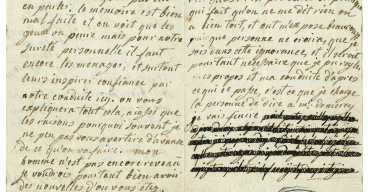 en parler. le mémoire est bien
mal faite et on voit que les
gens on peur mais pour notre
sureté personnelle il faut
encore les ménager, et surtout
leurs inspirer confiance par
notre conduite ici, on vous
expliquera tout cela, ainsi que
les raisons pourquoi souvent je
ne peu pas vous avertire d'avance
de ce qu'on va faire. mon
homme n'est pas encore revenu
je voudrois pourtant bien avoir
des nouvelles d'ou vous etes.
qui fait qu'on ne me dit rien on
a bien tort, et ont m'est pose beaucoup
que personne ne croira que je
sois dans cette ignorance, et il seroit
pourtant nécessaire que je puisse
mes propos et ma conduite d'après
ce qui ce passe, c'est ce que je charge
la personne de dire a mr
vais finire